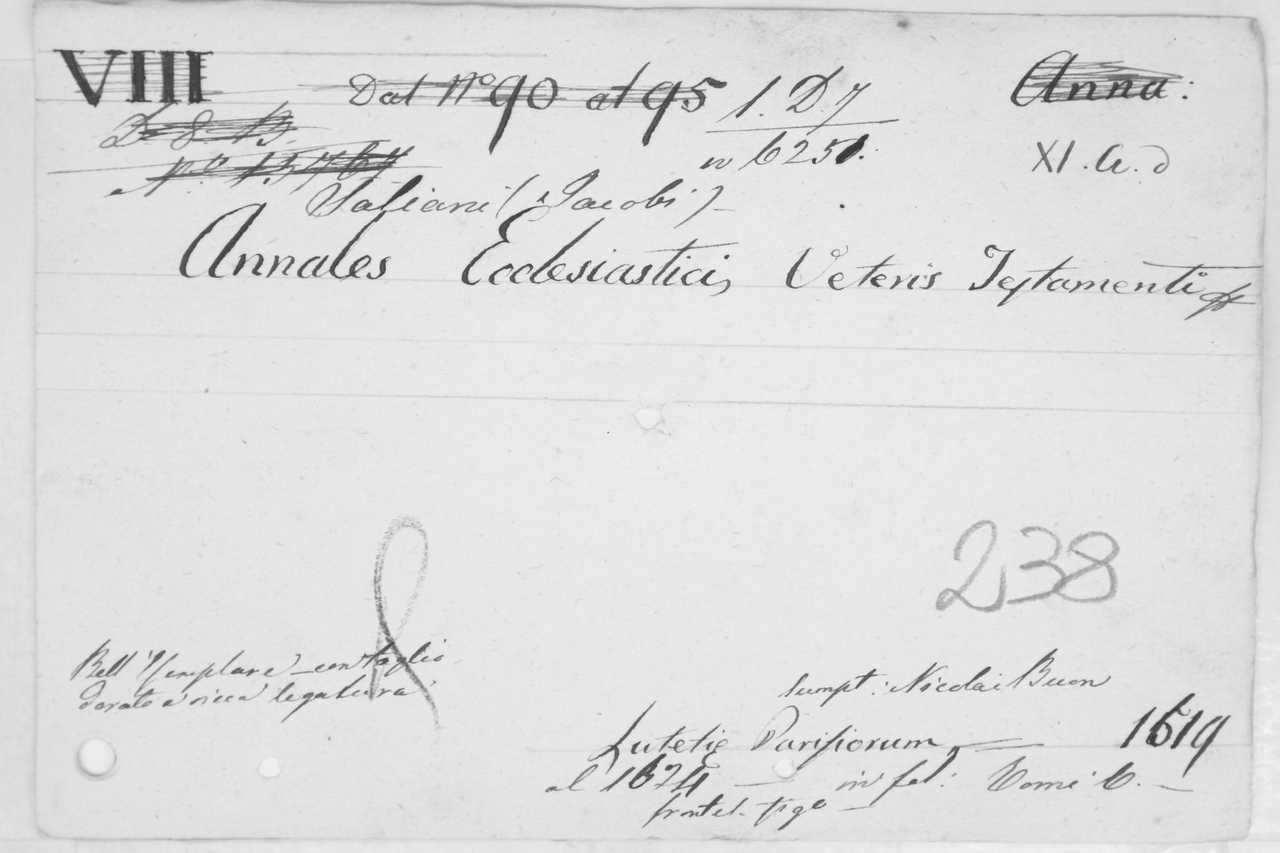 VIII Dal N.º 90 al 95 1. D. 7 Anna:
D - 8 - B. n 6251. XI. a. d
N.º 15764
Saliani (Jacobi)
Annales Ecclesiastici, Veteris Testamenti &
238
Bell'Esemplare con taglio
dorato e ricca legatura
sumpt: Nicolai Buon
Lutetie Parisiorum — 1619
al 1624 — in fol: Tomi 6. —
frontel. fige